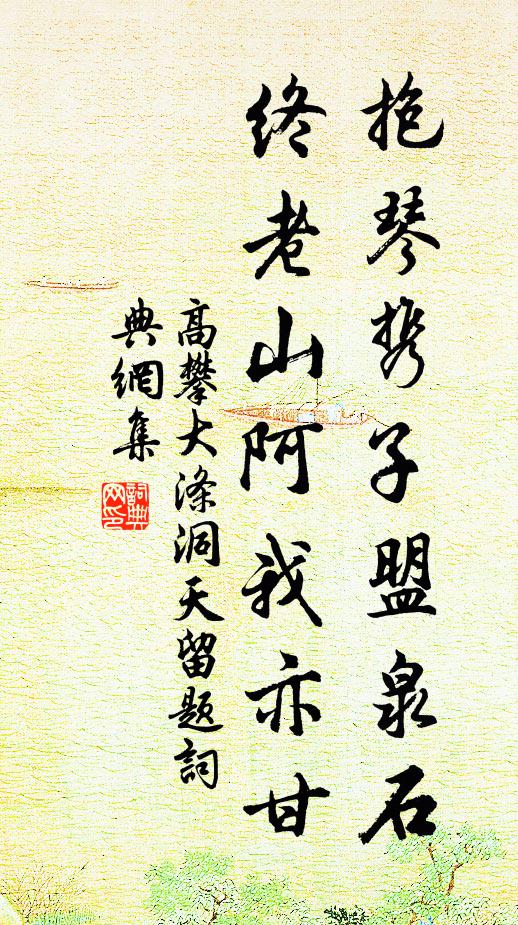 抱琴携子盟泉石
终老山阿我亦甘
高攀大涤洞天留题詞
典網集
詞典
网印